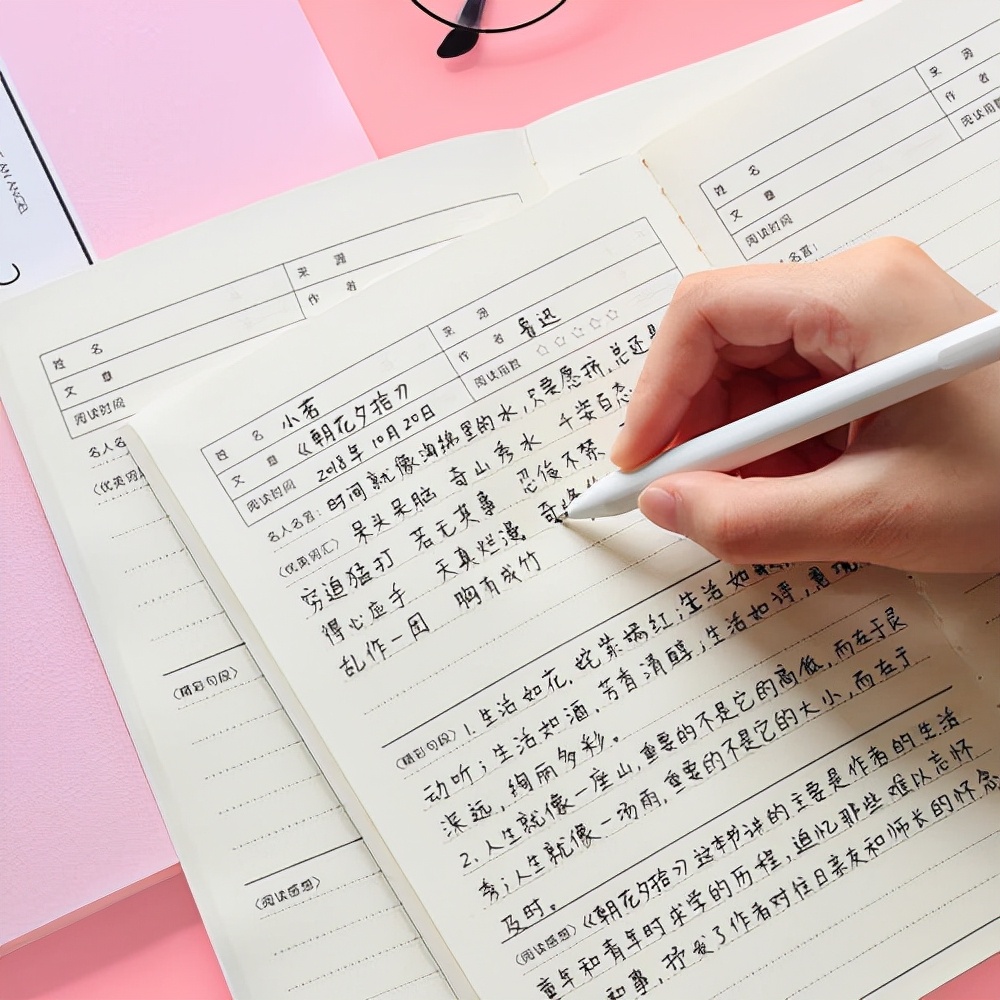 AN ANGEL
来 源
作 者
姓 名
文 章
阅读时间
名人名
〈优美词
〈精彩句段〉
〈阅读感想〉
来 源
作 者
阅读用时
姓 名
文 章
阅读时间
名人名言:
来 源
作 者 鲁迅
阅读用时 ☆☆☆☆☆
姓 名 小若
文 章 《朝花夕拾》
阅读时间 2018年10月20日
名人名言: 时间就像海绵里的水,只要愿挤,总还是
〈优美词汇〉 呆头呆脑 奇山秀水 千姿百态
穷追猛打 若无其事 忍俊不禁
得心应手 天真烂漫 奇
乱作一团 胸有成竹
〈精彩句段〉 1.生活如花,姹紫嫣红,生活如
动听;生活如酒,芳香清醇;生活如诗,意境
深远,绚丽多彩。
2.人生就像一座山,重要的不是它的高低,而在于灵
秀;人生就像一场雨,重要的不是它的大小,而在于
及时。
〈阅读感想〉 《朝花夕拾》这本书讲的主要是作者的生活
童年和青年时求学的历程,追忆那些难以忘怀
和事,抒发了作者对往日亲友和师长的怀念